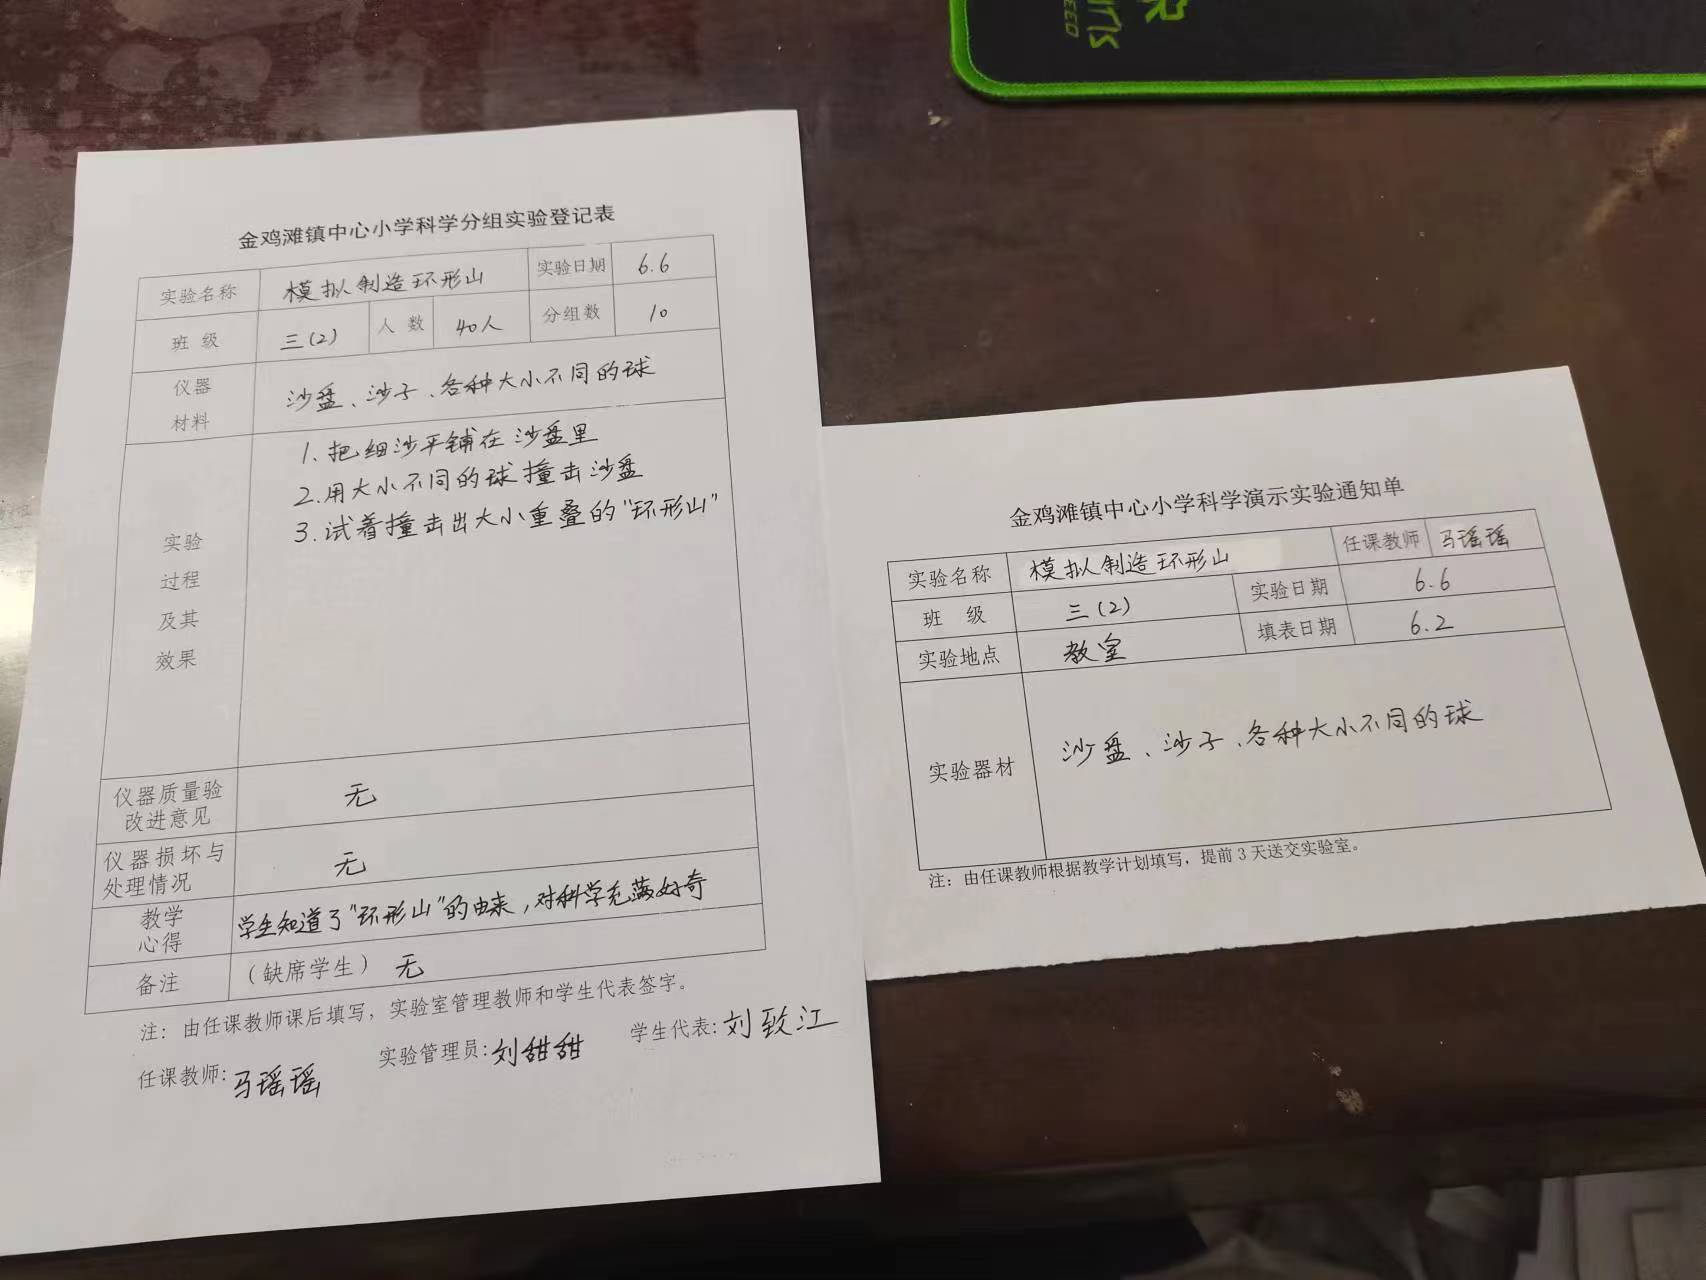 金鸡滩镇中心小学科学分组实验登记表
实验名称 模拟制造环形山 实验日期 6.6
班 级 三(2) 人 数 40人 分组数 10
仪器
材料
沙盘、沙子、各种大小不同的球
实验
过程
及其
效果
1. 把细沙平铺在沙盘里
2. 用大小不同的球撞击沙盘
3. 试着撞击出大小重叠的“环形山”
仪器质量验
改进意见
无
仪器损坏与
处理情况
无
教学
心得
学生知道了“环形山”的由来，对科学充满好奇
备注 （缺席学生） 无
注：由任课教师课后填写，实验室管理教师和学生代表签字。
任课教师:马瑶瑶 实验管理员:刘甜甜 学生代表:刘致江
金鸡滩镇中心小学科学演示实验通知单
实验名称 模拟制造环形山 任课教师 马瑶瑶
班 级 三(2) 实验日期 6.6
实验地点 教室 填表日期 6.2
实验器材 沙盘、沙子、各种大小不同的球
注：由任课教师根据教学计划填写，提前3天送交实验室。